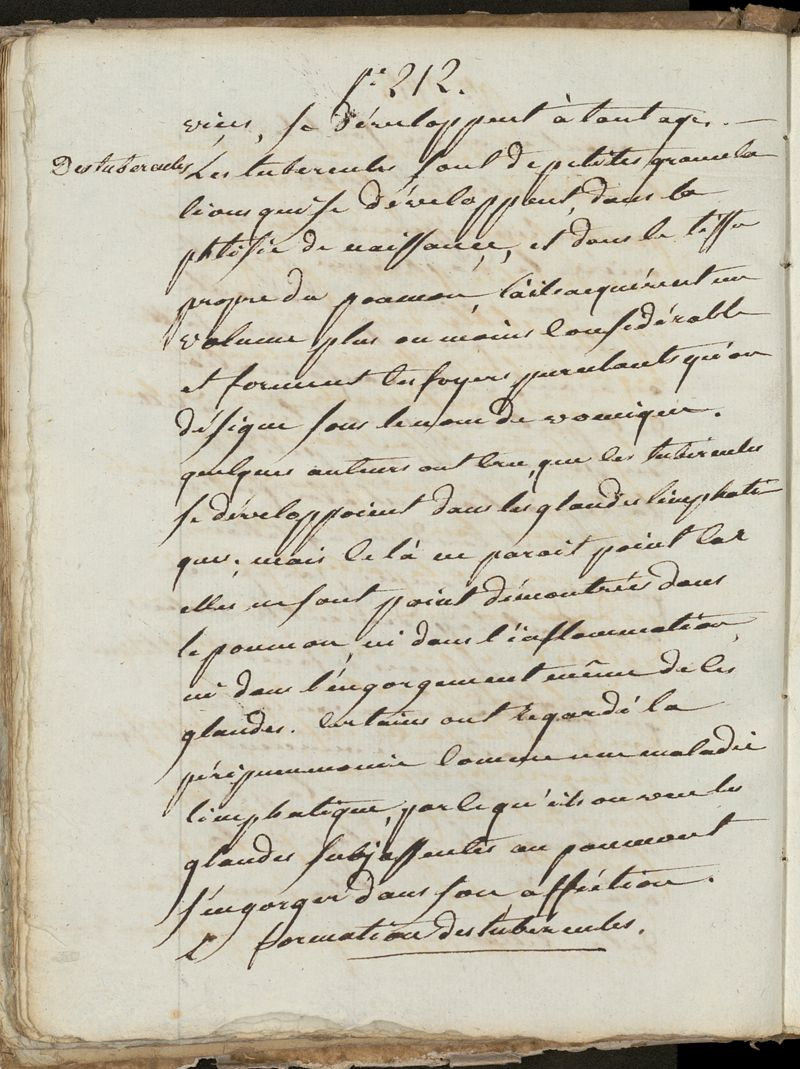 pe 212.
vices, se développent à tout age. —
Des tubercules
Les tubercules sont de petites granula
tions qui se développent, dans la
phtisie de naissance, et dans le tissu
propre du poumon, là ils acquérent un
volume plus ou moins considérable
et forment les foyers purulants qu'on
désigne sous le nom de vomique.
quelques auteurs ont cru, que les tubércules
se développoient dans les glandes limphati
ques. mais celà ne paroit point car
elles ne sont point démontrées dans
le poumon, ni dans l'inflammation,
ni dans l'engorgement même de ces
glandes. Certains ont regardé la
péripneumonie comme une maladie
limphatique, parcequ'ils ont vu les
glandes subjassentes au poumont
s'engorger dans son afféction.
formation des tubércules.